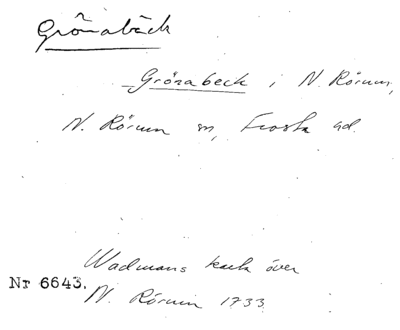 Grönabäck
Grönabeck i N. Rörum,
N. Rörum sn, Frosta hd.
Wadmans karta över
Nr 6643.
N. Rörum 1733